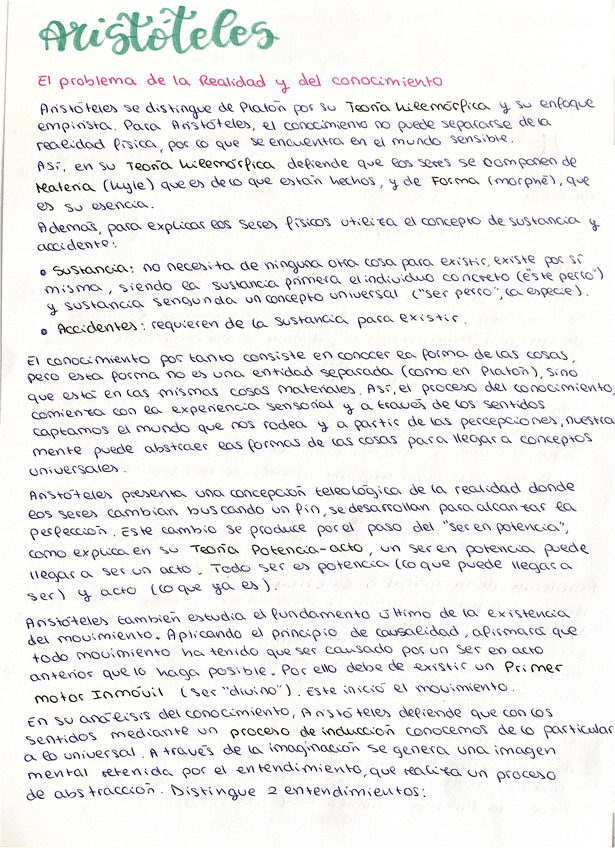 Aristóteles
El problema de la Realidad y del conocimiento
Aristóteles se distingue de Platón por su Teoría hilemórfica y su enfoque
empirista. Para Aristóteles, el conocimiento no puede separarse de la
realidad física, por lo que se encuentra en el mundo sensible.
Así, en su Teoría hilemórfica defiende que los seres se componen de
Materia (hyle) que es de lo que están hechos, y de Forma (morphé), que
es su esencia.
Además, para explicar los seres físicos utiliza el concepto de sustancia y
accidente:
• Sustancia: no necesita de ninguna otra cosa para existir, existe por sí
misma, siendo la sustancia primera el individuo concreto (éste perro")
y sustancia sengunda un concepto universal ("ser perro", la especie).
• Accidentes: requieren de la sustancia para existir.
El conocimiento por tanto consiste en conocer la forma de las cosas,
pero esta forma no es una entidad separada (como en Platón), sino
que está en las mismas cosas materiales. Así, el proceso del conocimiento,
comienza con la experiencia sensorial y a través de los sentidos
captamos el mundo que nos rodea y a partir de las percepciones, nuestra
mente puede abstraer las formas de las cosas para llegar a conceptos
universales.
Aristóteles presenta una concepción teleológica de la realidad donde
los seres cambian buscando un fin, se desarrollan para alcanzar la
perfección. Este cambio se produce por el paso del "ser en potencia",
como explica en su Teoría Potencia-acto, un ser en potencia puede
llegar a ser un acto. Todo ser es potencia (lo que puede llegar a
ser) y acto (lo que ya es).
Aristóteles también estudia el fundamento último de la existencia
del movimiento. Aplicando el principio de causalidad, afirmará que
todo movimiento ha tenido que ser causado por un ser en acto
anterior que lo haga posible. Por ello debe de existir un Primer
motor Inmóvil (ser "divino"). Este inició el movimiento.
En su análisis del conocimiento, Aristóteles defiende que con los
sentidos mediante un proceso de inducción conocemos de lo particular
a lo universal. A través de la imaginación se genera una imagen
mental retenida por el entendimiento, que realiza un proceso
de abstracción. Distingue 2 entendimientos: